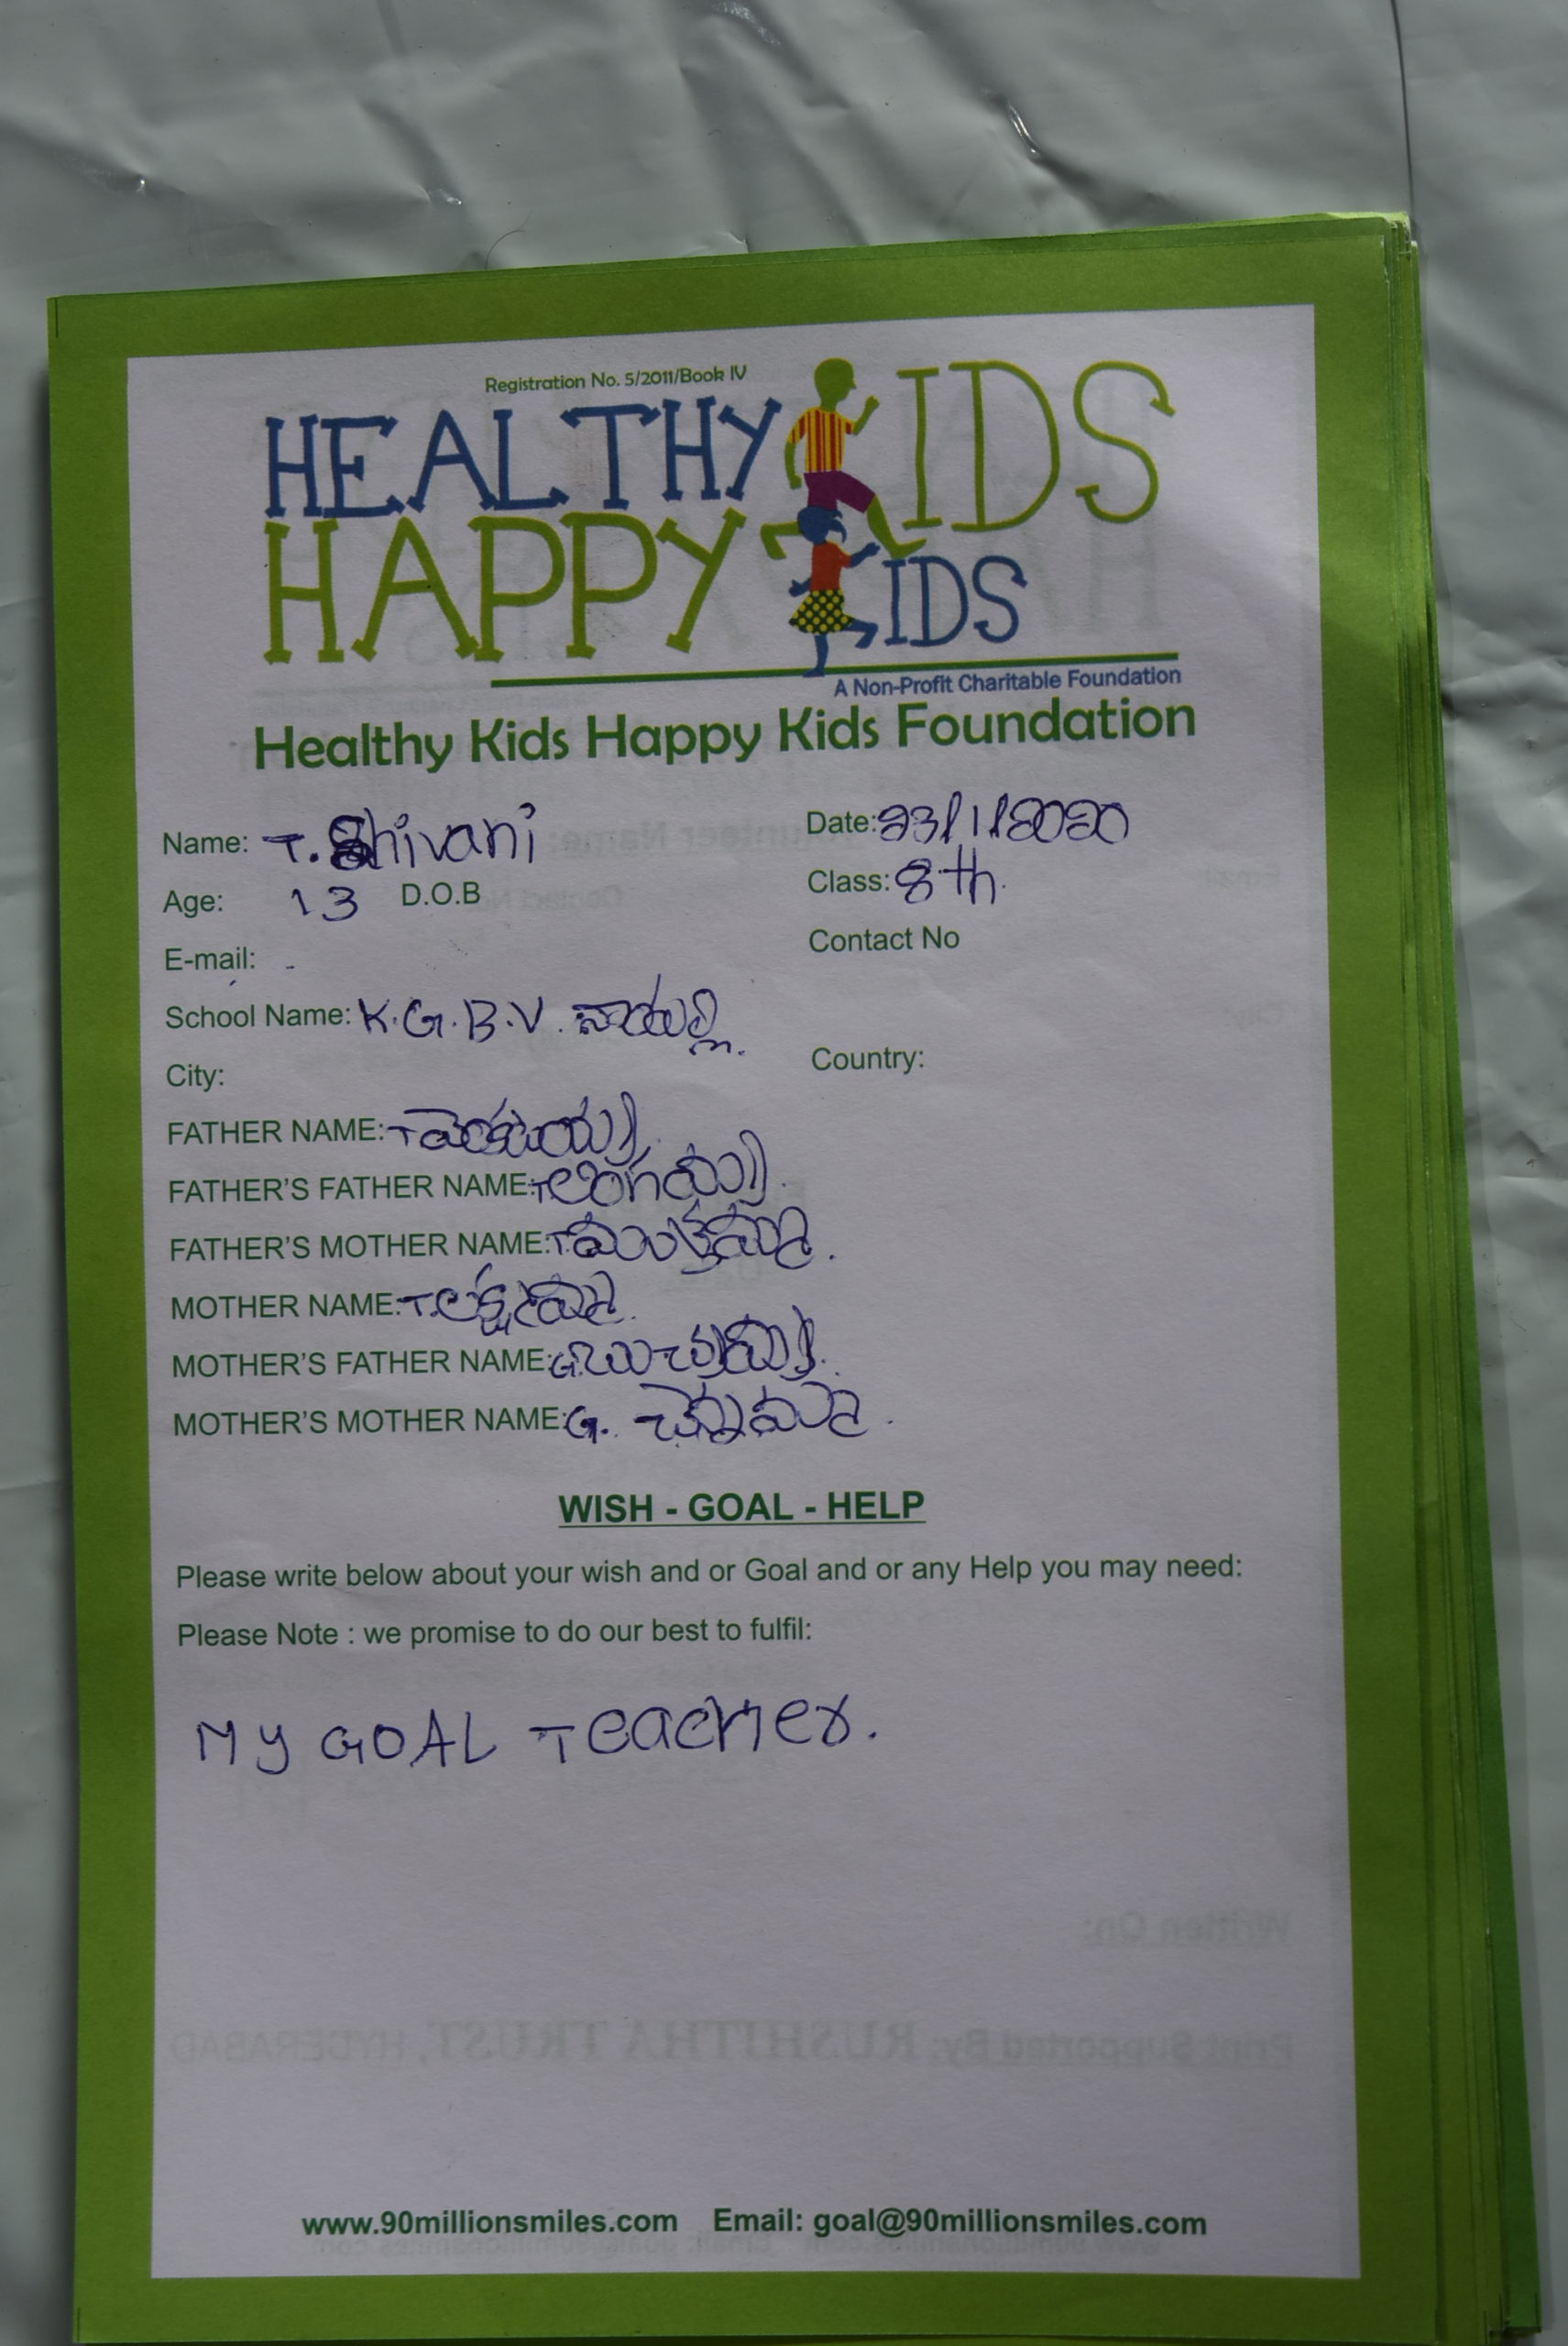 Registration No. 5/2011/Book IV
HEALTHY KIDS
HAPPY KIDS
A Non-Profit Charitable Foundation
Healthy Kids Happy Kids Foundation
Name: T. Shivani Date: 23/1/2020
Age: 13 D.O.B Class: 8th.
E-mail: - Contact No
School Name: K.G.B.V.
City: Country:
FATHER NAME: T వెంకటయ్య.
FATHER'S FATHER NAME: T లింగయ్య.
FATHER'S MOTHER NAME: T.
MOTHER NAME: T. లక్ష్మమ్మ.
MOTHER'S FATHER NAME: G. బుచ్చయ్య.
MOTHER'S MOTHER NAME: G. చెన్నమ్మ.
WISH - GOAL - HELP
Please write below about your wish and or Goal and or any Help you may need:
Please Note : we promise to do our best to fulfil:
MY GOAL Teacher.
Written On:
Print Supported By: RUSHITHA TRUST, HYDERABAD
www.90millionsmiles.com Email: goal@90millionsmiles.com